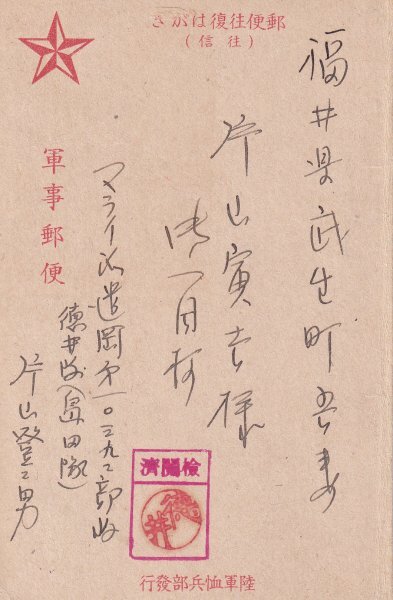 郵便往復はがき
(往信)
福井県武生町吾妻
片山寅吉様
御一同様
軍事郵便
マライ派遣岡第一〇三九二部隊
徳井隊(島田隊)
片山 男
檢閲濟
徳井
陸軍恤兵部發行